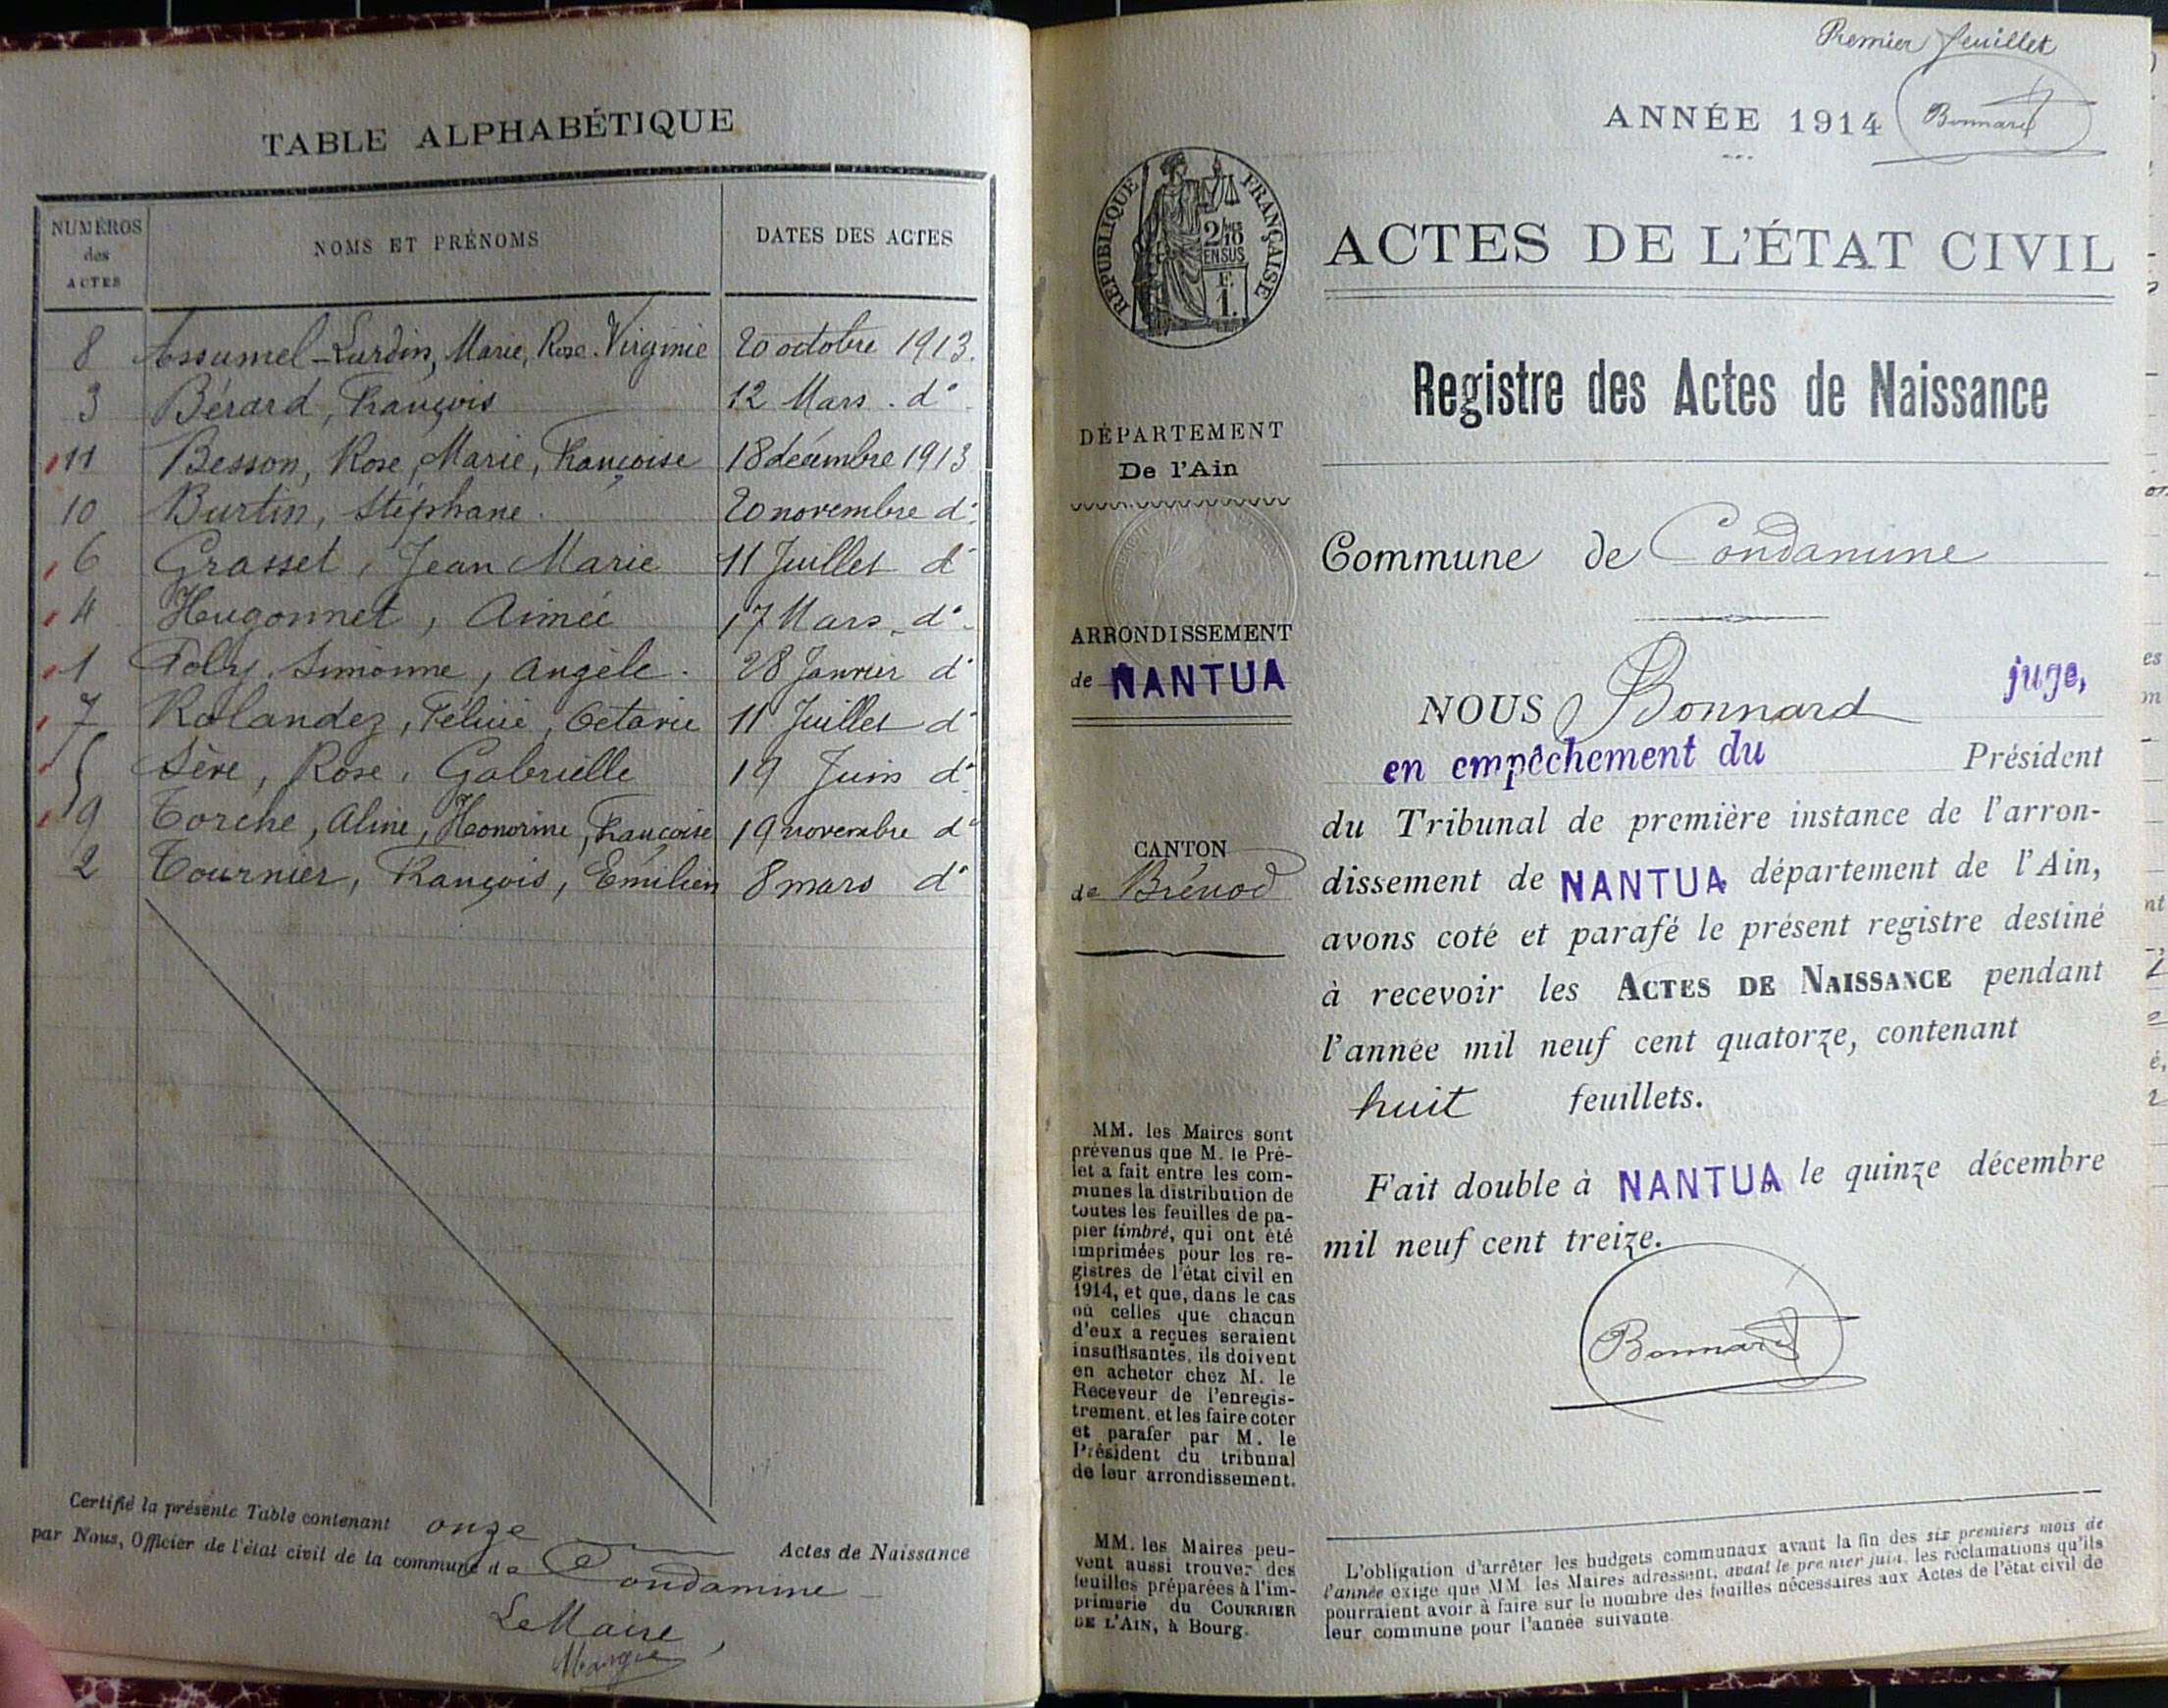 TABLE ALPHABÉTIQUE
NUMÉROS
des
ACTES
NOMS ET PRÉNOMS
DATES DES ACTES
8 Assumel-Lurdin, Marie, Rose. Virginie 20 octobre 1913.
3 Bérard, François 12 Mars. d°
11 Besson, Rose, Marie, Françoise 18 décembre 1913
10 Burtin, Stéphane. 20 novembre d°
6 Grasset, Jean Marie 11 Juillet d°
4 Hugonnet, Aimée 17 Mars d°
1 Poly. Simonne, Angèle. 28 Janvier d°
7 Rolandez, Félicie, Octavie 11 Juillet d°
5 Sève, Rose, Gabrielle 19 Juin d°
9 Torche, Aline, Honorine, Françoise 19 novembre d°
2 Tournier, François, Emilien 8 mars d°
Certifié la présente Table contenant onze Actes de Naissance
par Nous, Officier de l'état civil de la commune de Condamine
Le Maire,
Premier feuillet
Bonnard
ANNÉE 1914
RÉPUBLIQUE FRANÇAISE
2/10
EN SUS
F.
1.
ACTES DE L'ÉTAT CIVIL
Registre des Actes de Naissance
DÉPARTEMENT
De l'Ain
Commune de Condamine
ARRONDISSEMENT
de NANTUA
NOUS Bonnard juge,
en empêchement du Président
du Tribunal de première instance de l'arron-
CANTON
de Brénod
dissement de NANTUA département de l'Ain,
avons coté et parafé le présent registre destiné
à recevoir les ACTES DE NAISSANCE pendant
l'année mil neuf cent quatorze, contenant
huit feuillets.
Fait double à NANTUA le quinze décembre
mil neuf cent treize.
Bonnard
MM. les Maires sont
prévenus que M. le Pré-
fet a fait entre les com-
munes la distribution de
toutes les feuilles de pa-
pier timbré, qui ont été
imprimées pour les re-
gistres de l'état civil en
1914, et que, dans le cas
où celles que chacun
d'eux a reçues seraient
insuffisantes, ils doivent
en acheter chez M. le
Receveur de l'enregis-
trement, et les faire coter
et parafer par M. le
Président du tribunal
de leur arrondissement.
MM. les Maires peu-
vent aussi trouver des
feuilles préparées à l'im-
primerie du COURRIER
DE L'AIN, à Bourg.
L'obligation d'arrêter les budgets communaux avant la fin des six premiers mois de
l'année exige que MM. les Maires adressent, avant le premier juin, les réclamations qu'ils
pourraient avoir à faire sur le nombre des feuilles nécessaires aux Actes de l'état civil de
leur commune pour l'année suivante.